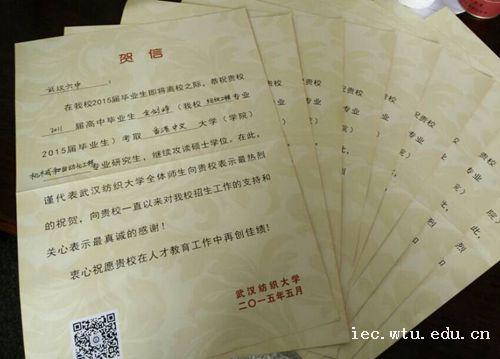 贺信
武汉六中 :
在我校2015届毕业生即将离校之际，恭祝贵校
2011 届高中毕业生 (我校 专业
2015届毕业生) 考取 香港中文 大学 (学院)
机械与自动化工程 专业研究生，继续攻读硕士学位。在此，
谨代表武汉纺织大学全体师生向贵校表示最热烈
的祝贺，向贵校一直以来对我校招生工作的支持和
关心表示最真诚的感谢！
衷心祝愿贵校在人才教育工作中再创佳绩！
武汉纺织大学
二〇一五年五月
iec.wtu.edu.cn